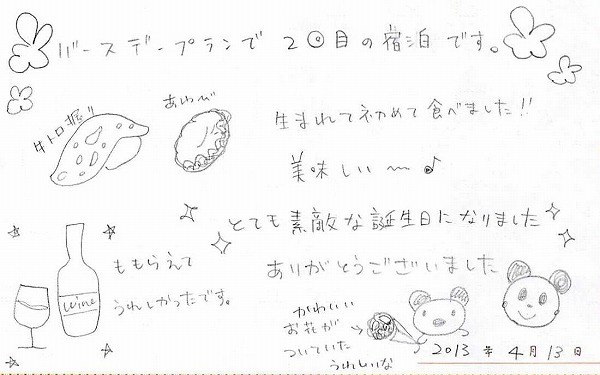 バースデープランで2回目の宿泊です。
牛トロ握り
あわび
生まれて初めて食べました!!
美味しい〜♪
とても素敵な誕生日になりました
ももらえて
うれしかったです。
wine
ありがとうございました
かわいい
お花が
ついていた
うれしいな
2013年4月13日